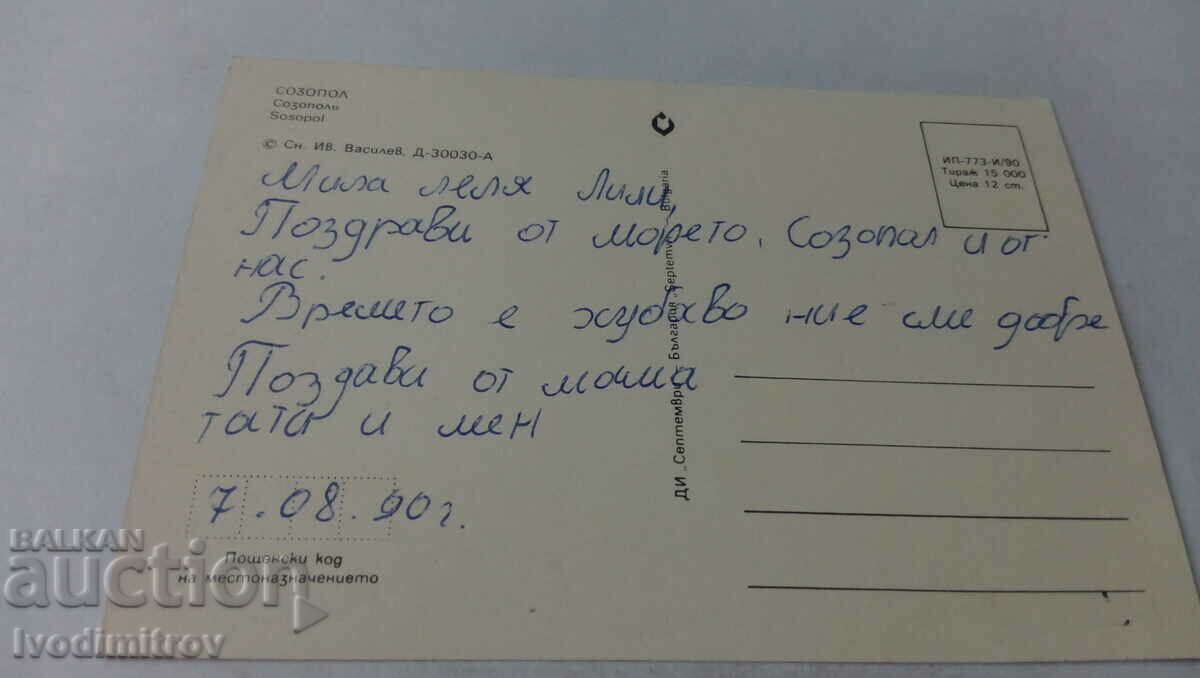 СОЗОПОЛ
Созополь
Sosopol
© Сн. Ив. Василев. Д-30030-А
ИП-773-И/90
Тираж 15 000
Цена 12 ст.
Мила леля Лили,
Поздрави от морето, Созопал и от
нас.
Времето е хубаво ние сме добре
Поздави от мама
тати и мен
7.08.90г.
Пощенски код
на местоназначението
ДИ „Септември България „Septemvri Bulgaria
BALKAN
auction
Ivodimitrov